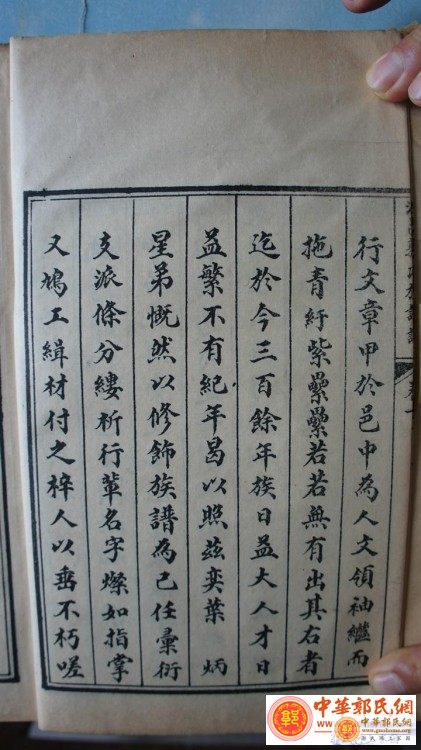 行文章甲於邑中為人文領袖繼而
拖青紆紫纍纍若若無有出其右者
迄於今三百餘年族日益大人才日
益繁不有紀年曷以照茲奕葉　炳
星弟慨然以修飾族譜為已任彙衍
支派條分縷析行輩名字燦如指掌
又鳩工緝材付之梓人以垂不朽嗟
中華郭氏網
www.guohome.org